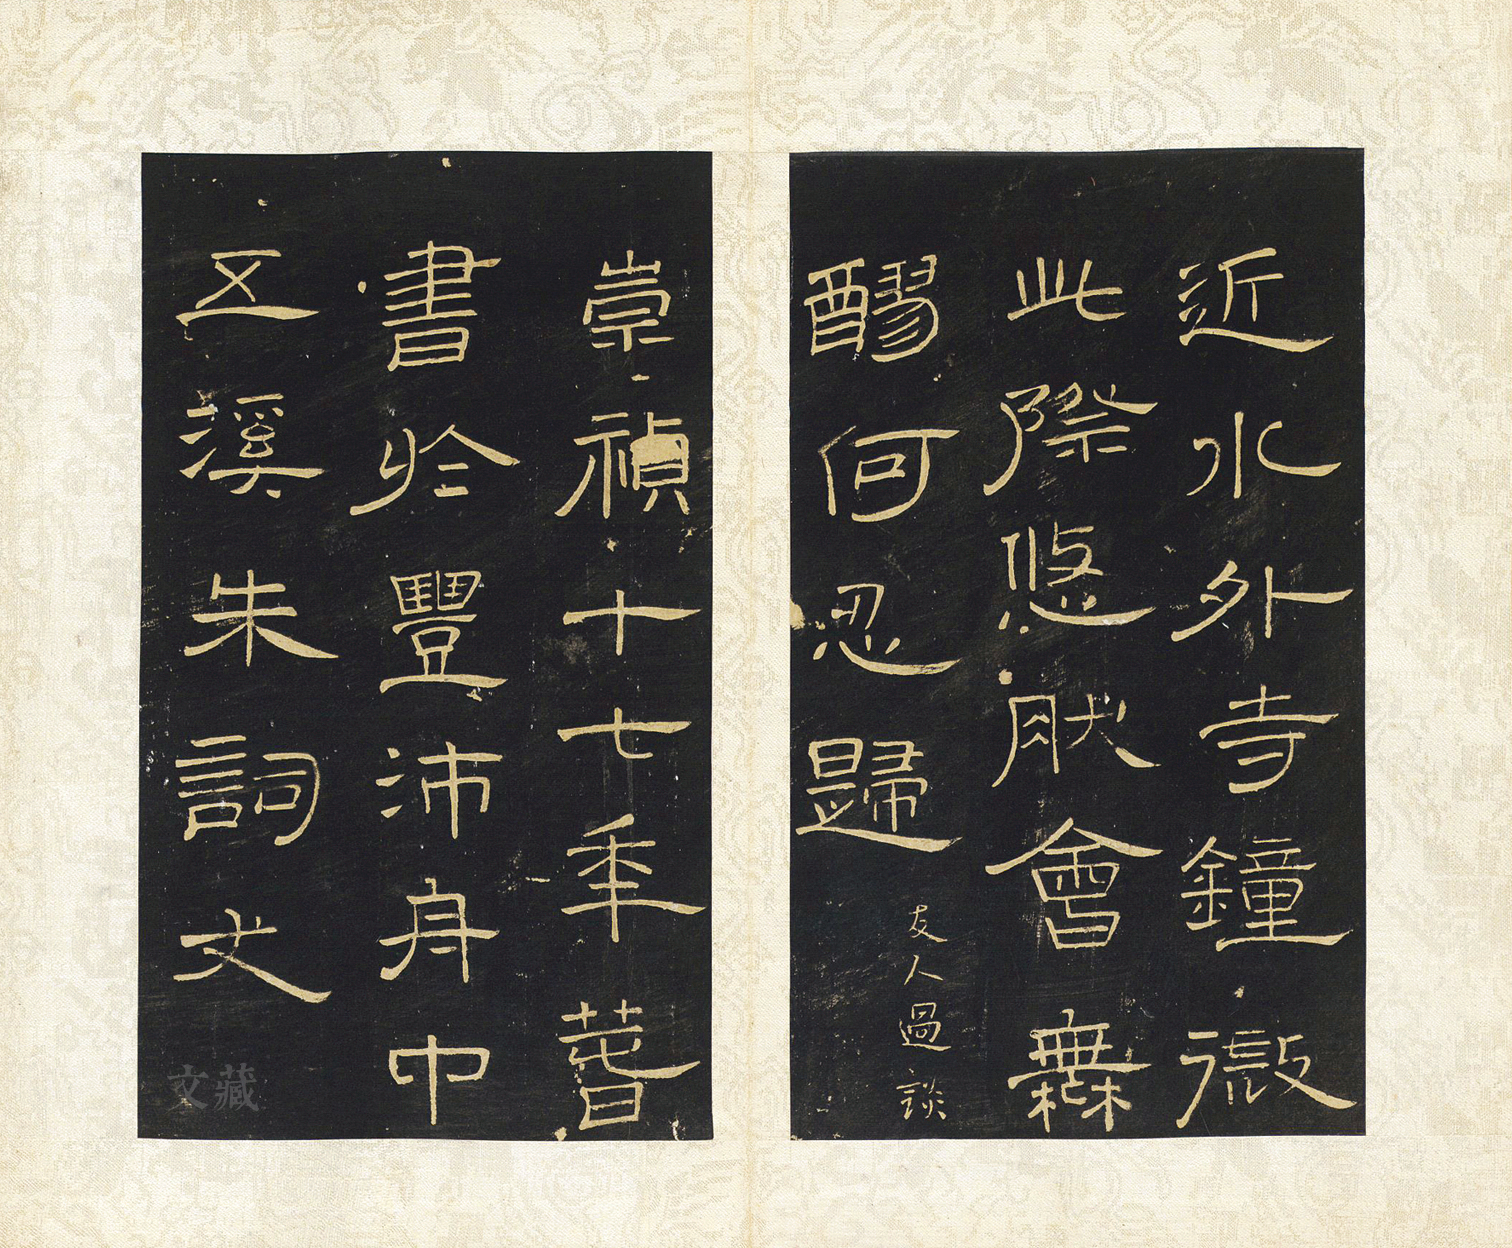 近水外寺鐘微
此際悠肰會橆
醪何忍歸
友人過談
崇禎十七年萅
書於豐沛舟中
五溪朱詞
文藏